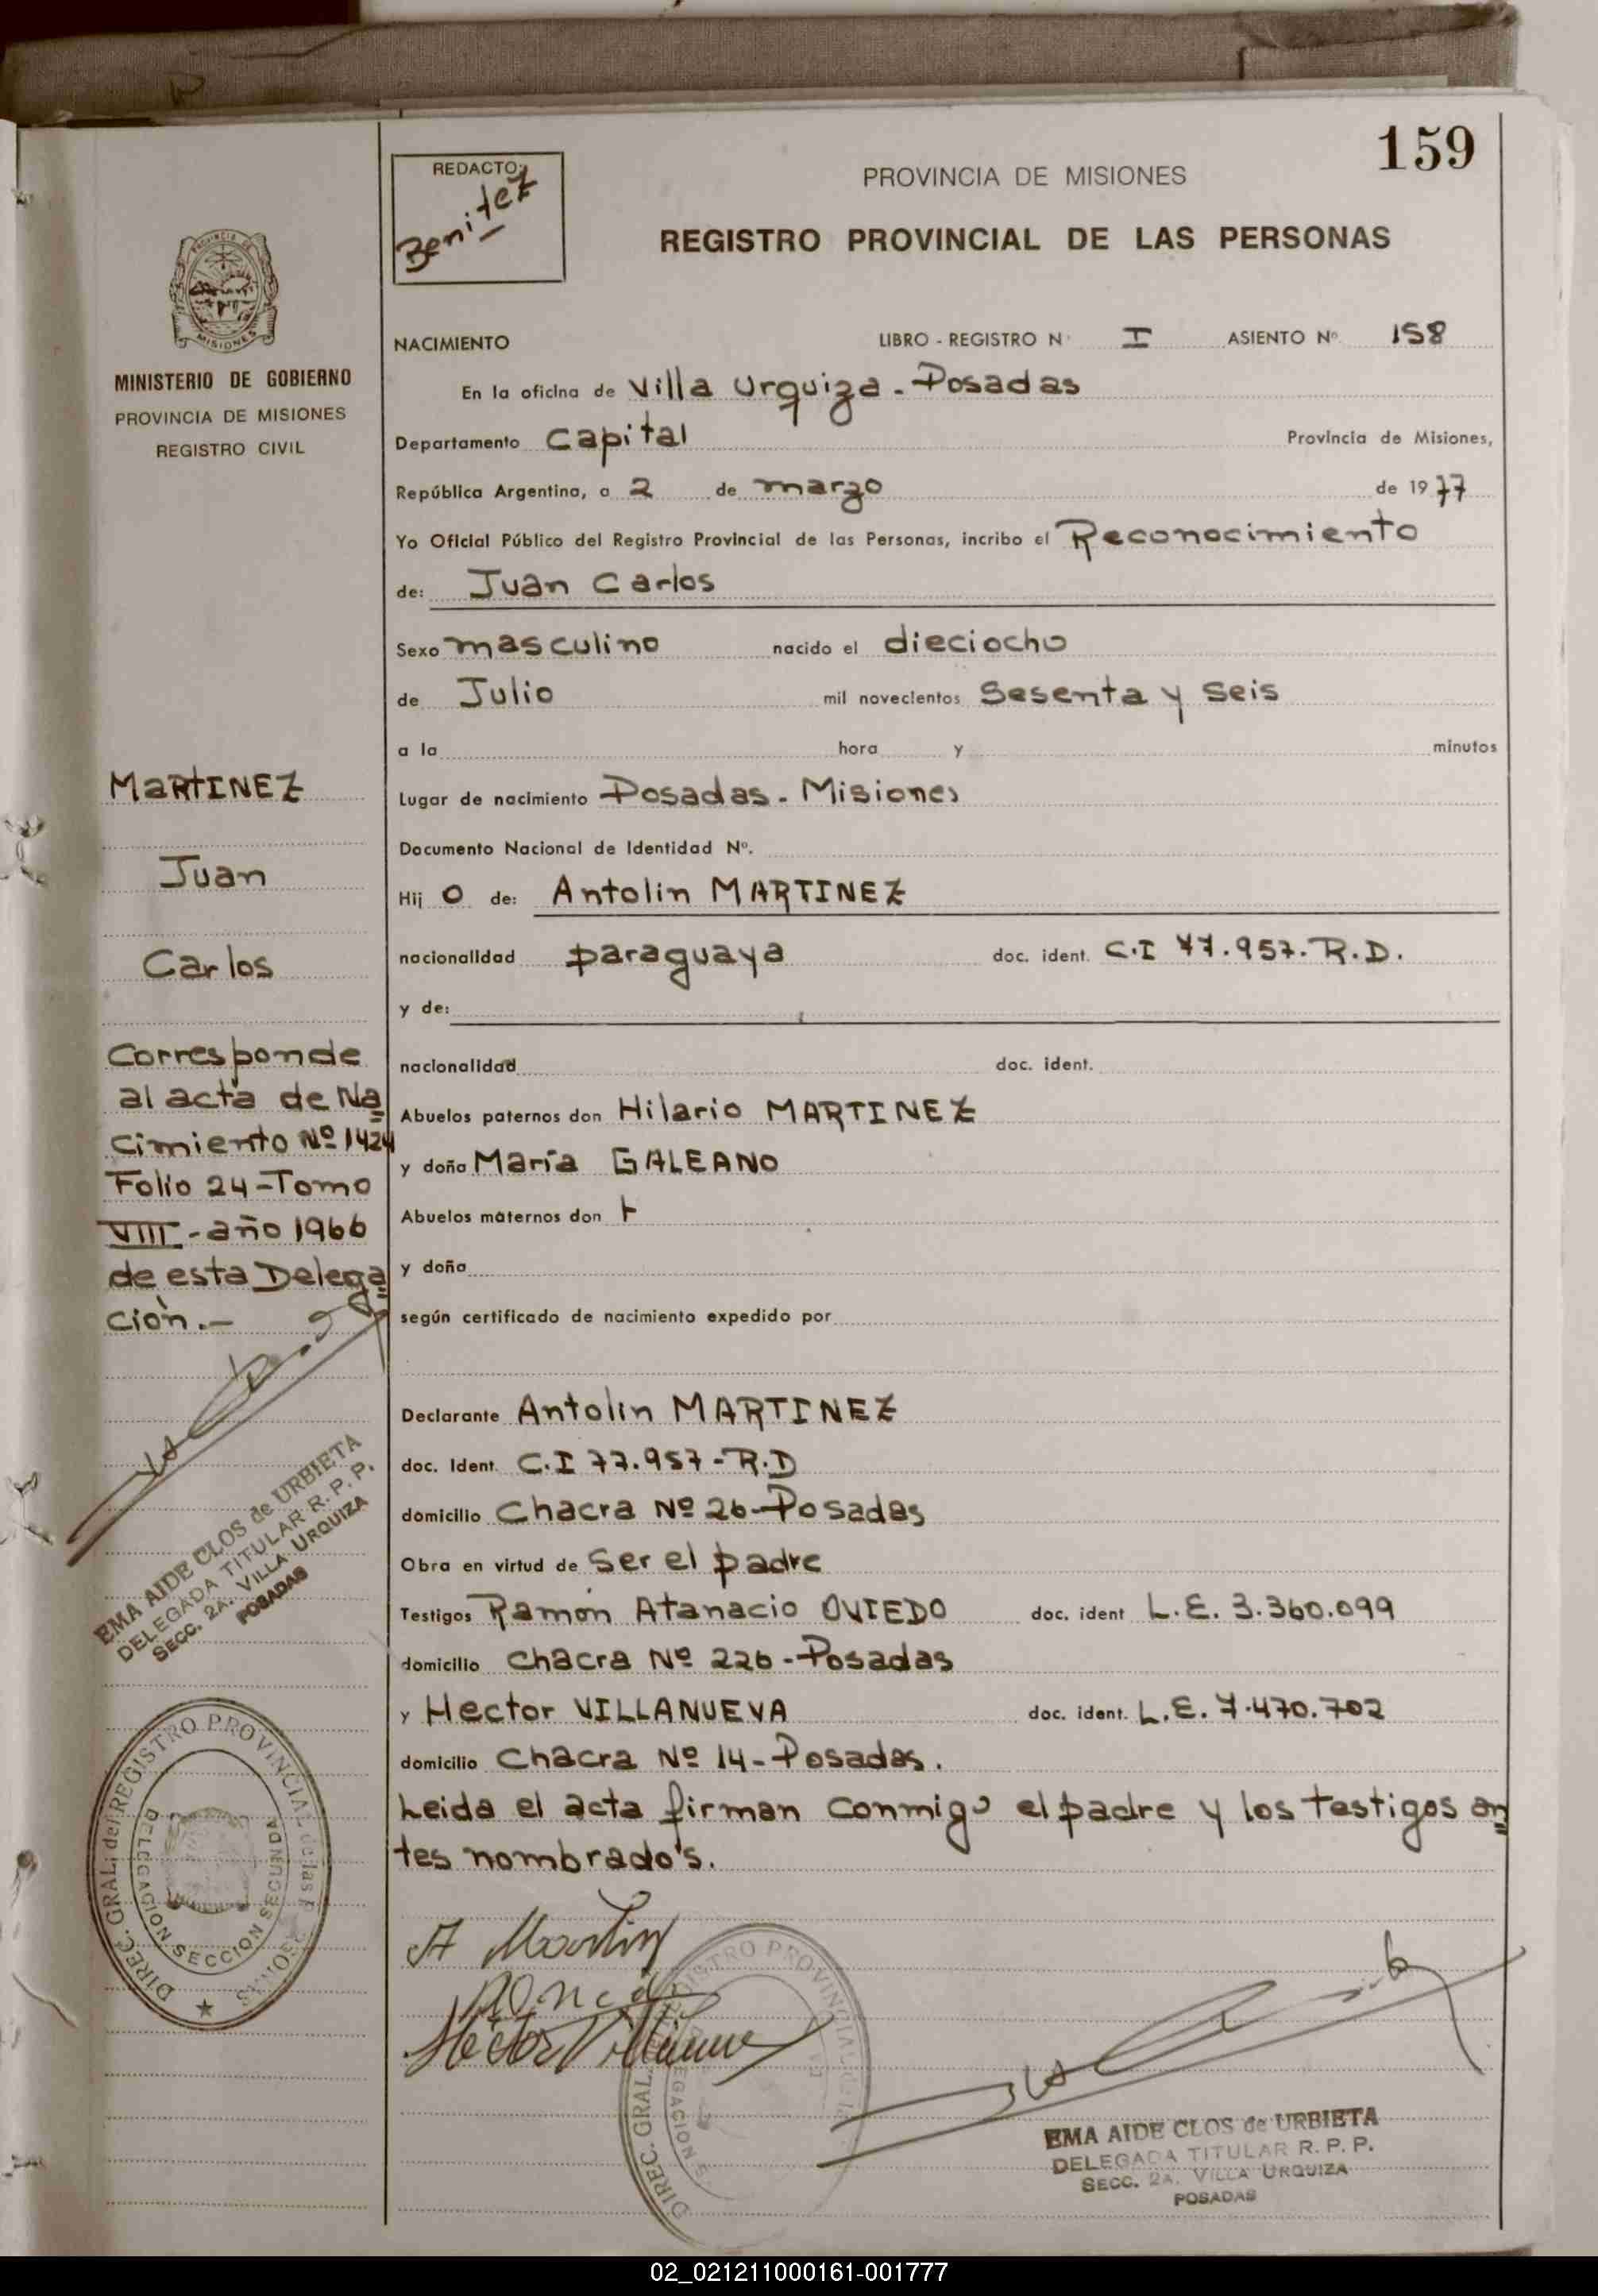 159
REDACTO:
Benitez
PROVINCIA DE MISIONES
REGISTRO PROVINCIAL DE LAS PERSONAS
PROVINCIA DE
MISIONES
MINISTERIO DE GOBIERNO
PROVINCIA DE MISIONES
REGISTRO CIVIL
NACIMIENTO LIBRO - REGISTRO Nº I ASIENTO Nº 158
En la oficina de Villa Urquiza - Posadas
Departamento Capital Provincia de Misiones,
República Argentina, a 2 de marzo de 1977
Yo Oficial Público del Registro Provincial de las Personas, incribo el Reconocimiento
de: Juan Carlos
Sexo masculino nacido el dieciocho
de Julio mil novecientos Sesenta y Seis
a la hora y minutos
Lugar de nacimiento Posadas - Misiones
Documento Nacional de Identidad Nº.
Hij o de: Antolin MARTINEZ
nacionalidad paraguaya doc. ident. C.I 77.957. R.D.
y de:
nacionalidad doc. ident.
Abuelos paternos don Hilario MARTINEZ
y doña María GALEANO
Abuelos maternos don
y doña
según certificado de nacimiento expedido por
Declarante Antolin MARTINEZ
doc. Ident. C.I 77.957 - R.D
domicilio Chacra Nº 26 - Posadas
Obra en virtud de Ser el padre
Testigos Ramón Atanacio OVIEDO doc. ident L.E. 3.360.099
domicilio Chacra Nº 226 - Posadas
y Hector VILLANUEVA doc. ident. L.E. 7.470.702
domicilio Chacra Nº 14 - Posadas.
Leida el acta firman conmigo el padre y los testigos an
tes nombrados.
MARTINEZ
Juan
Carlos
Corresponde
al acta de Na
cimiento Nº 1424
Folio 24 - Tomo
VIII - año 1966
de esta Delega
ción.-
EMA AIDE CLOS de URBIETA
DELEGADA TITULAR R. P. P.
SECC. 2A. VILLA URQUIZA
POSADAS
DIREC. GRAL. del REGISTRO PROVINCIAL de las PERSONAS
DELEGACION SECCION SEGUNDA
A Martin
Hector Villanueva
DIREC. GRAL. REGISTRO PROVINCIAL de las
EMA AIDE CLOS de URBIETA
DELEGADA TITULAR R. P. P.
SECC. 2A. VILLA URQUIZA
POSADAS
02_021211000161-001777